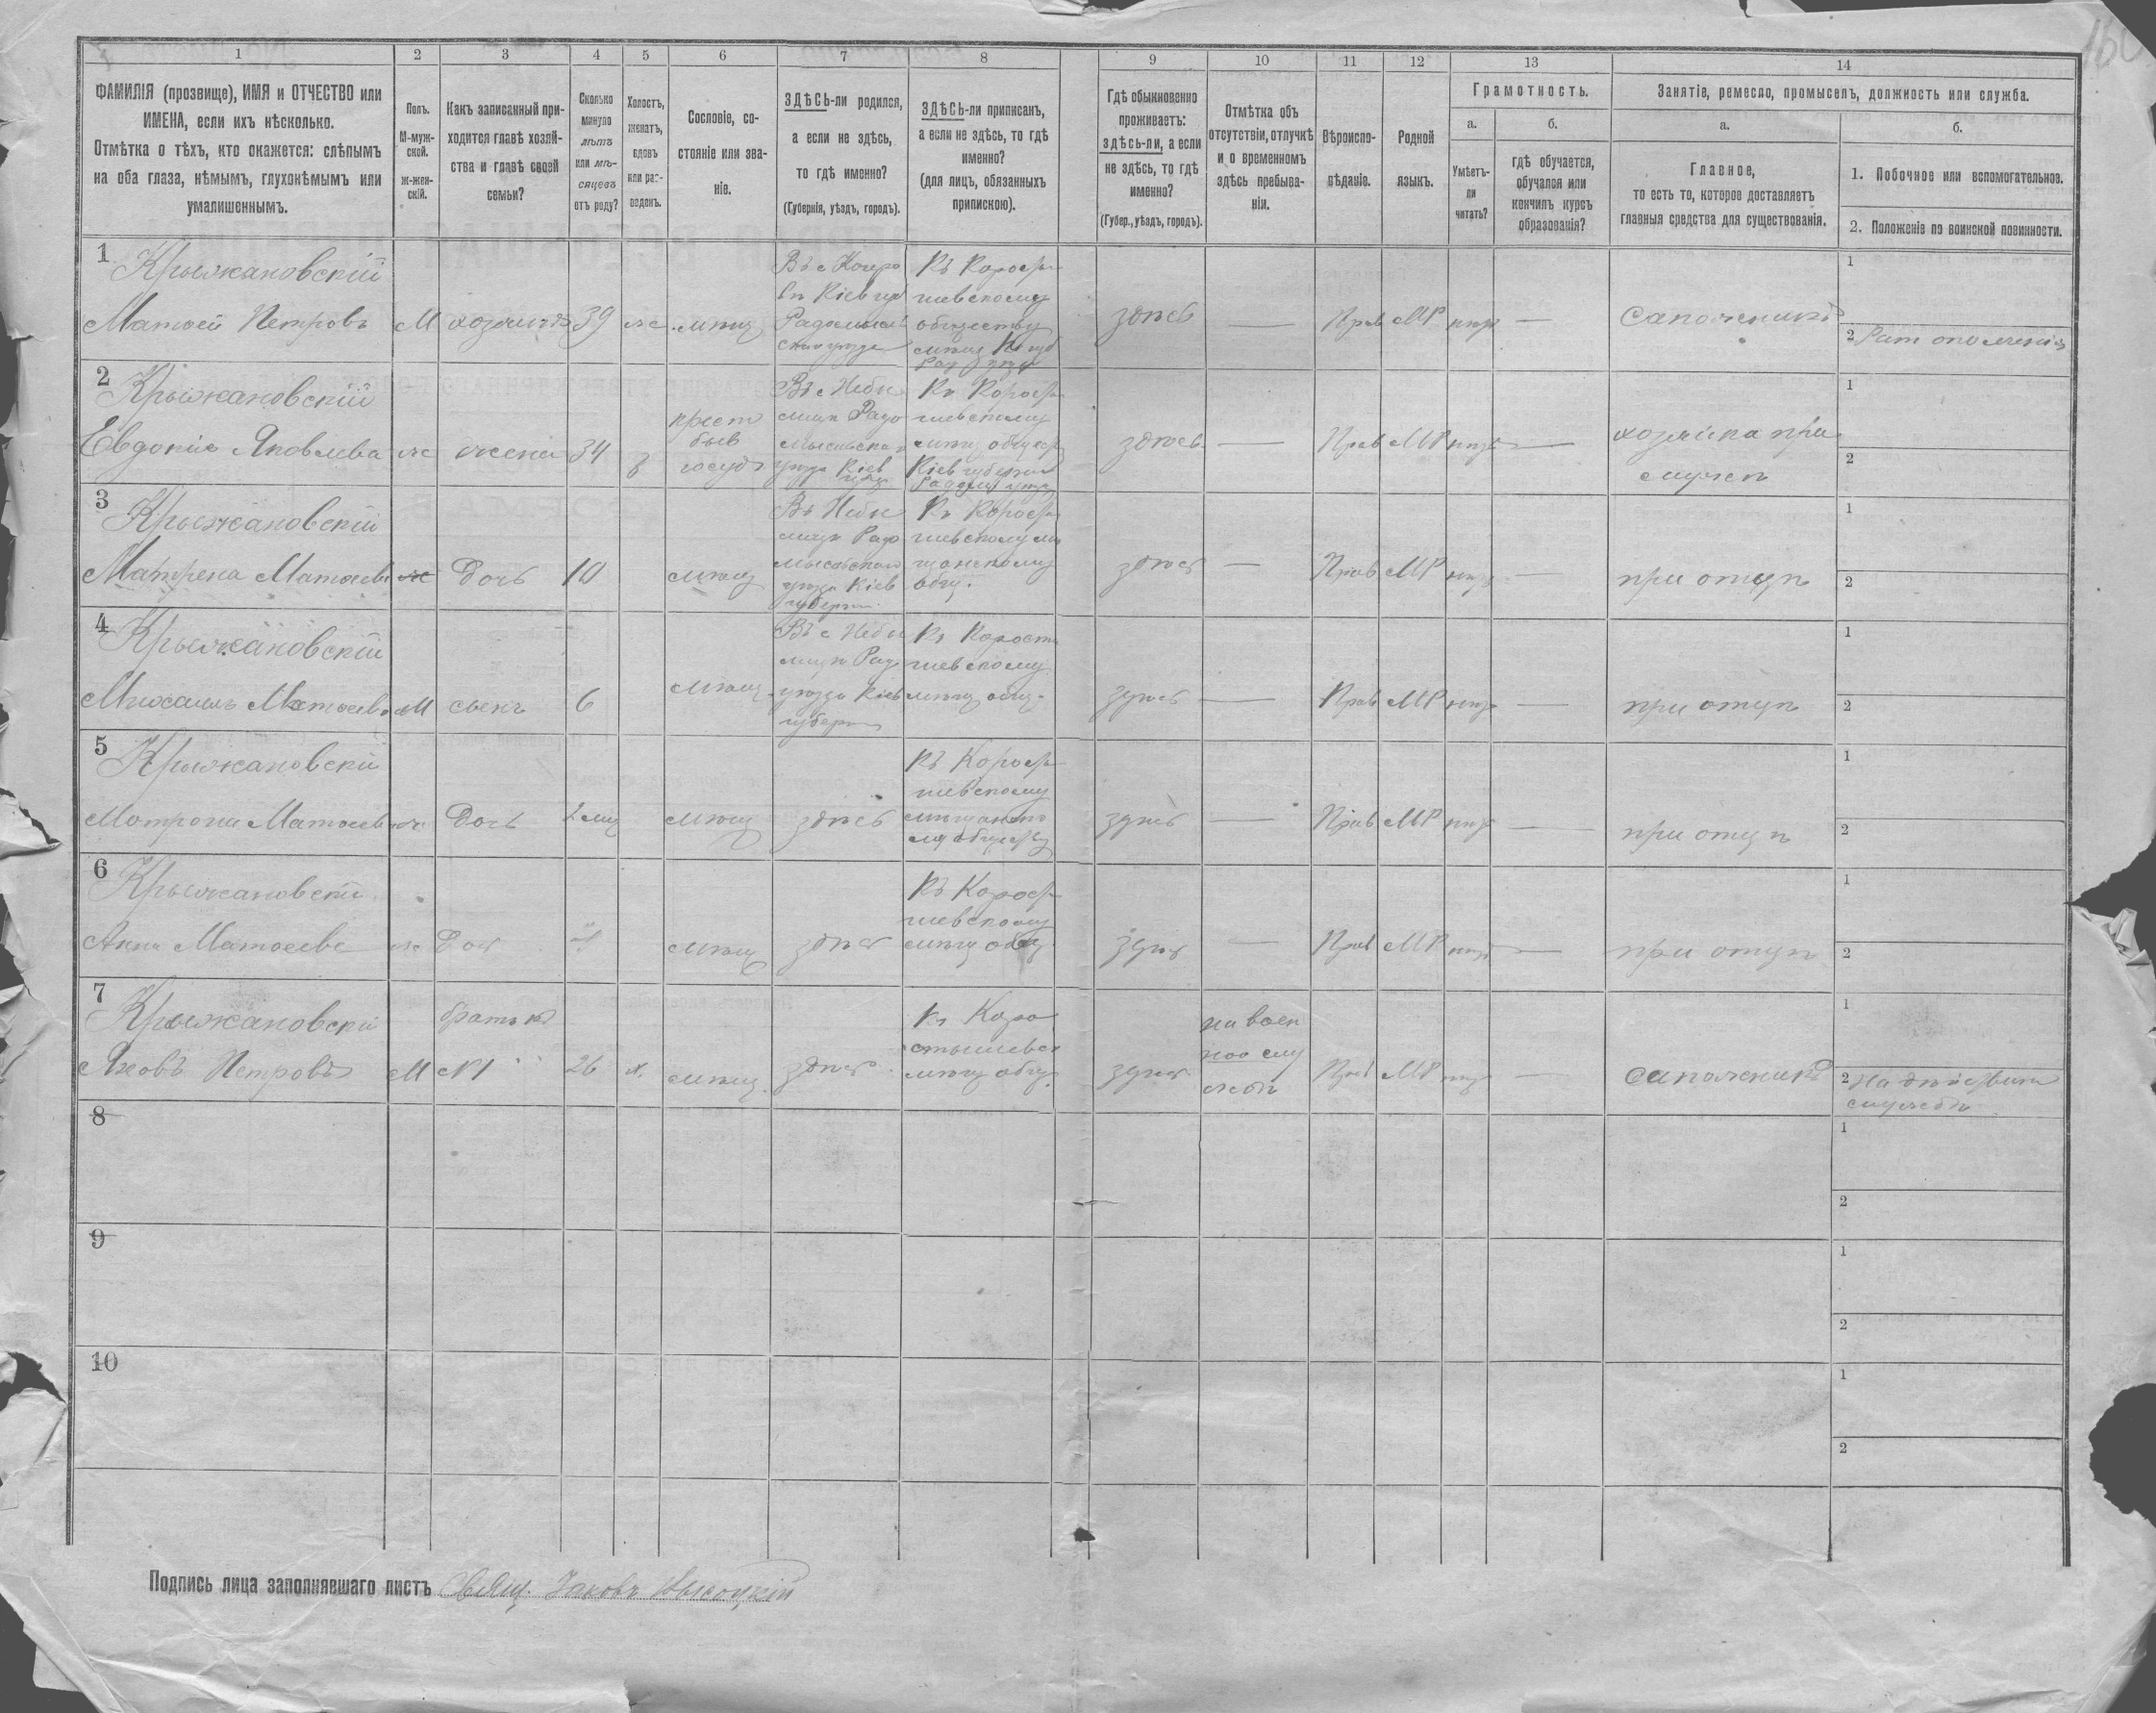 1 2 3 4 5 6 7 8 9 10 11 12 13 14
ФАМИЛІЯ (прозвище), ИМЯ и ОТЧЕСТВО или
ИМЕНА, если ихъ нѣсколько.
Отмѣтка о тѣхъ, кто окажется: слѣпымъ
на оба глаза, нѣмымъ, глухонѣмымъ или
умалишеннымъ.
Полъ.
М-муж-
ской.
Ж-жен-
скій.
Какъ записанный при-
ходится главѣ хозяй-
ства и главѣ своей
семьи?
Сколько
минуло
лѣтъ
или мѣ-
сяцевъ
отъ роду?
Холостъ,
женатъ,
вдовъ
или раз-
веденъ.
Сословіе, со-
стояніе или зва-
ніе.
ЗДѢСЬ-ли родился,
а если не здѣсь,
то гдѣ именно?
(Губернія, уѣздъ, городъ).
ЗДѢСЬ-ли приписанъ,
а если не здѣсь, то гдѣ
именно?
(для лицъ, обязанныхъ
припискою).
Гдѣ обыкновенно
проживаетъ:
здѣсь-ли, а если
не здѣсь, то гдѣ
именно?
(Губер., уѣздъ, городъ).
Отмѣтка объ
отсутствіи, отлучкѣ
и о временномъ
здѣсь пребыва-
ніи.
Вѣроиспо-
вѣданіе.
Родной
языкъ.
Грамотность.
а.
б.
Умѣетъ-
ли
читать?
гдѣ обучается,
обучался или
кончилъ курсъ
образованія?
Занятіе, ремесло, промыселъ, должность или служба.
а.
б.
Главное,
то есть то, которое доставляетъ
главныя средства для существованія.
1. Побочное или вспомогательное.
2. Положеніе по воинской повинности.
1
Крыжановскій
Матвей Петровъ
М
хозяинъ
39
ж
мѣщ
Въ с
Кіев губ
Радомысль
скаго уезда
Къ Корост
шевскому
обществу
здѣсь
—
Прав
МР
—
сапожникъ
1
2 Рат ополченія
2
Крыжановскій
Евдокія Яковлева
ж
жена
34
з
крест
быв
госуд
Въ с Небы
лицѣ Радо
мысльскаго
уезда Кіев
Къ Корост
шевскому
мѣщ общест
Кіев губерніи
здѣсь
—
Прав
МР
—
хозяйка при
мужѣ
1
2
3
Крыжановскій
Матрена Матвеева
ж
Дочь
10
мѣщ
Въ Небы
лицѣ Радо
мысльскаго
уезда Кіев
губерніи
Къ Корост
шевскому мѣ
щанскому
общ.
здѣсь
—
Прав
МР
—
при отцѣ
1
2
4
Крыжановскій
Михаилъ Матвеевъ
М
сынъ
6
мѣщ
Въ с Небы
лицѣ Рад
уезда Кіев
губерніи
Къ Корости
шевскому
мѣщ общ.
здѣсь
—
Прав
МР
—
при отцѣ
1
2
5
Крыжановскій
Матвеев
ж
Дочь
мѣщ
здѣсь
Къ Корост
шевскому
мѣщанско
му обществу
здѣсь
—
Прав
МР
—
при отцѣ
1
2
6
Крыжановскій
Анна Матвеева
ж
Доч
мѣщ
здѣсь
Къ Корост
шевскому
мѣщ общ
здѣсь
—
Прав
МР
—
при отцѣ
1
2
7
Крыжановскій
Яковъ Петровъ
М
братъ къ
№1
26
х.
мѣщ.
здѣсь
Къ Коро
стышевск
мѣщ общ.
здѣсь
на воен
ной слу
жбѣ
Прав
МР
—
сапожникъ
1
2 На действит
службѣ
8
1
2
9
1
2
10
1
2
Подпись лица заполнявшаго листъ Свящ. Іаковъ Высоцкій